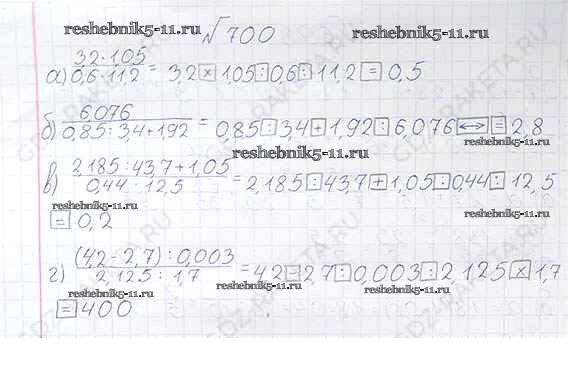 reshebnik5-11.ru
reshebnik5-11.ru
√700
а) 3,2·1,05 / 0,6·11,2 = 3,2 × 1,05 : 0,6 : 11,2 = 0,5
б) 6,076 / 0,85 : 3,4+1,92 = 0,85 : 3,4 + 1,92 : 6,076 ↔ = 2,8
reshebnik5-11.ru
в) 2,185 : 43,7+1,05 / 0,44 : 12,5 = 2,185 : 43,7 + 1,05 : 0,44 : 12,5
reshebnik5-11.ru
reshebnik5-11.ru
= 0,2
г) (4,2-2,7) : 0,003 / 2,125 : 1,7 = 4,2 - 2,7 : 0,003 : 2,125 × 1,7
reshebnik5-11.ru
reshebnik5-11.ru
reshebnik5-11.ru
= 400
GDZ-RAKETA.RU